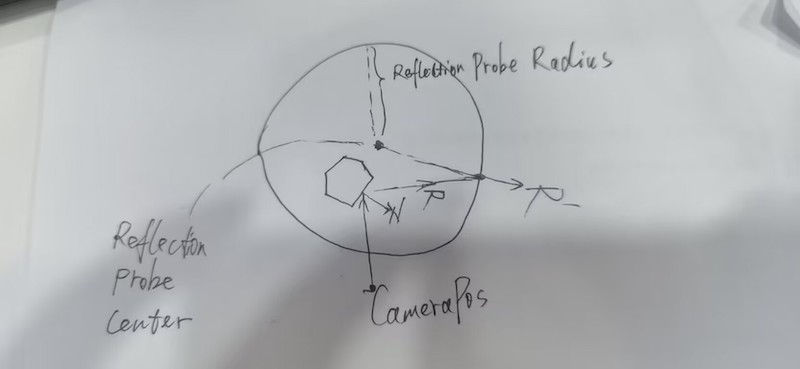 Reflection Probe Radius
N
R
R_
Reflection
Probe
Center
CameraPos